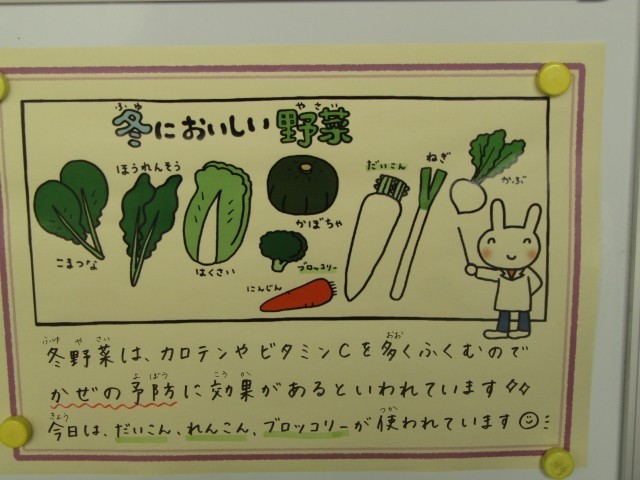 ふゆ やさい
冬においしい野菜
ほうれんそう
だいこん
ねぎ
かぶ
かぼちゃ
こまつな
はくさい
ブロッコリー
にんじん
ふゆ や さい おお
冬野菜は、カロテンやビタミンCを多くふくむので
よ ぼう こう か
かぜの予防に効果があるといわれています
きょう つか
今日は、だいこん、れんこん、ブロッコリーが使われています